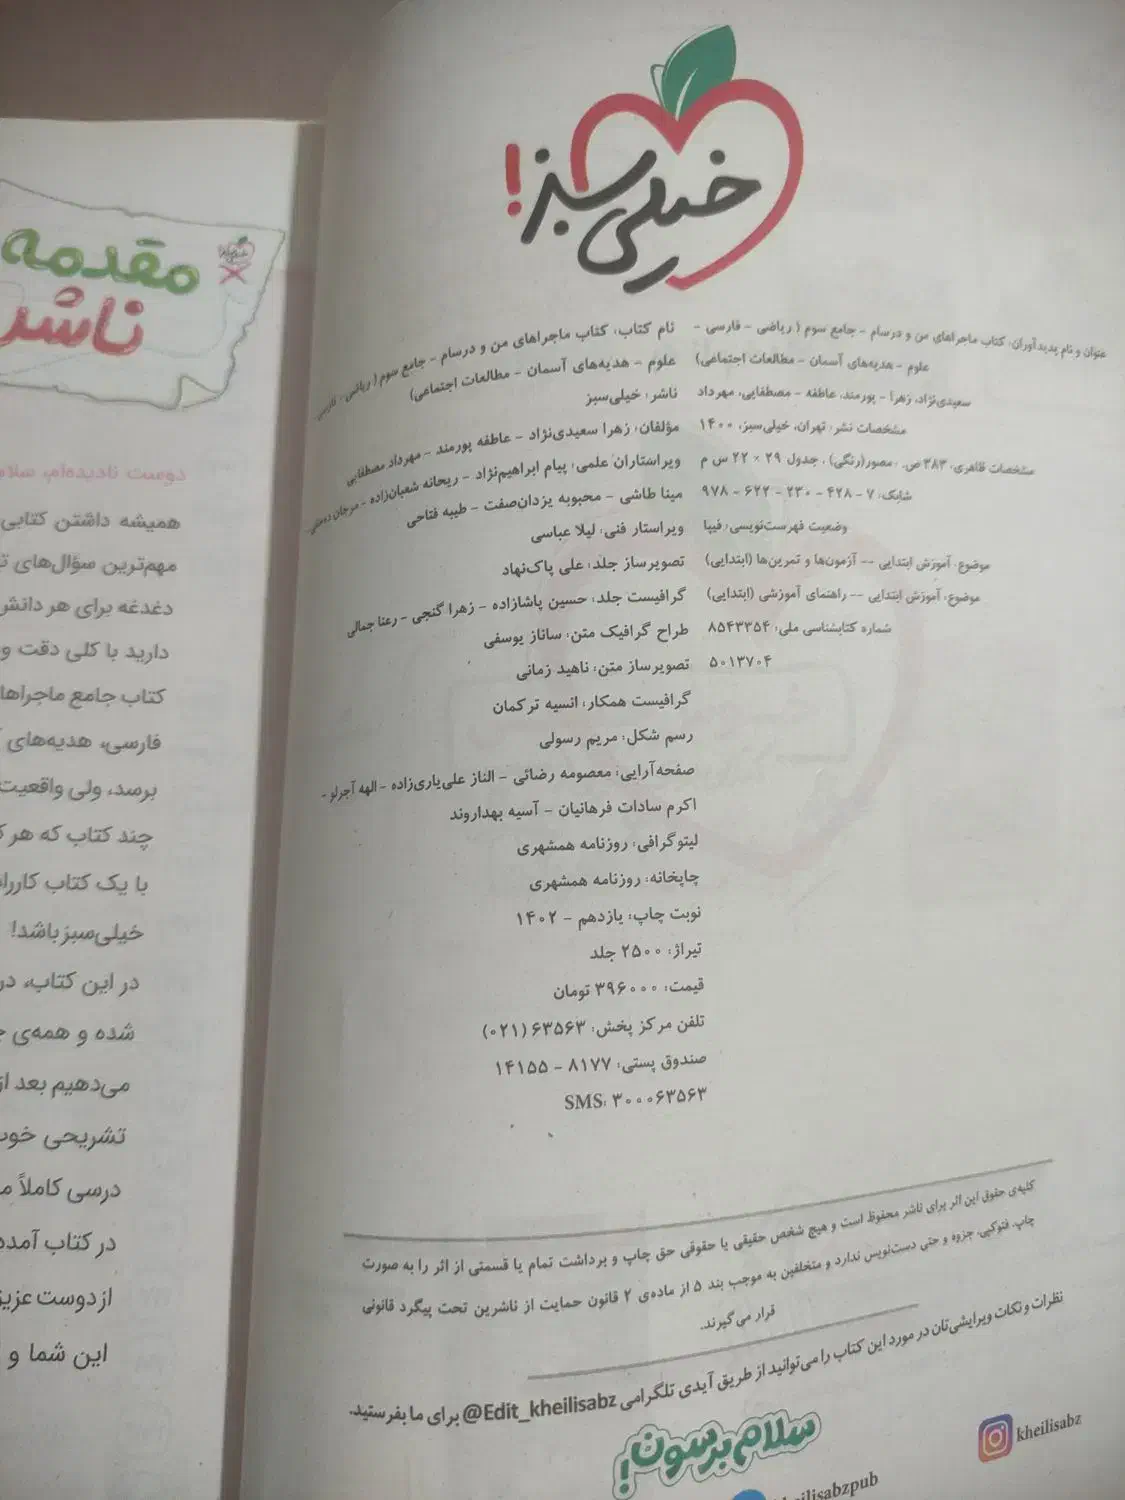 خیلی سبز!
عنوان و نام پدیدآوران: کتاب ماجراهای من و درسام - جامع سوم ( ریاضی - فارسی -
علوم - هدیه‌های آسمان - مطالعات اجتماعی)
سعیدی‌نژاد، زهرا - پورمند، عاطفه - مصطفایی، مهرداد
مشخصات نشر: تهران، خیلی‌سبز، ۱۴۰۰
مشخصات ظاهری: ۳۸۳ ص. ، مصور(رنگی) ، جدول ۲۹ × ۲۲ س م
شابک: ۷ - ۴۲۸ - ۲۳۰ - ۶۲۲ - ۹۷۸
وضعیت فهرست‌نویسی: فیپا
موضوع: آموزش ابتدایی -- آزمون‌ها و تمرین‌ها (ابتدایی)
موضوع: آموزش ابتدایی -- راهنمای آموزشی (ابتدایی)
شماره کتابشناسی ملی: ۸۵۴۳۳۵۴
۵۰۱۳۷۰۴
نام کتاب: کتاب ماجراهای من و درسام - جامع سوم ( ریاضی - فارسی -
علوم - هدیه‌های آسمان - مطالعات اجتماعی)
ناشر: خیلی‌سبز
مؤلفان: زهرا سعیدی‌نژاد - عاطفه پورمند - مهرداد مصطفایی
ویراستاران علمی: پیام ابراهیم‌نژاد - ریحانه شعبان‌زاده - مرجان
مینا طاشی - محبوبه یزدان‌صفت - طیبه فتاحی
ویراستار فنی: لیلا عباسی
تصویرساز جلد: علی پاک‌نهاد
گرافیست جلد: حسین پاشازاده - زهرا گنجی - رعنا جمالی
طراح گرافیک متن: ساناز یوسفی
تصویرساز متن: ناهید زمانی
گرافیست همکار: انسیه ترکمان
رسم شکل: مریم رسولی
صفحه‌آرایی: معصومه رضائی - الناز علی‌یاری‌زاده - الهه آجرلو -
اکرم سادات فرهانیان - آسیه بهداروند
لیتوگرافی: روزنامه همشهری
چاپخانه: روزنامه همشهری
نوبت چاپ: یازدهم - ۱۴۰۲
تیراژ: ۲۵۰۰ جلد
قیمت: ۳۹۶۰۰۰ تومان
تلفن مرکز پخش: ۶۳۵۶۳ (۰۲۱)
صندوق پستی: ۸۱۷۷ - ۱۴۱۵۵
SMS: ۳۰۰۰۶۳۵۶۳
کلیه‌ی حقوق این اثر برای ناشر محفوظ است و هیچ شخص حقیقی یا حقوقی حق چاپ و برداشت تمام یا قسمتی از اثر را به صورت
چاپ، فتوکپی، جزوه و حتی دست‌نویس ندارد و متخلفین به موجب بند ۵ از ماده‌ی ۲ قانون حمایت از ناشرین تحت پیگرد قانونی
قرار می‌گیرند.
نظرات و نکات ویرایشی‌تان در مورد این کتاب را می‌توانید از طریق آیدی تلگرامی @Edit_kheilisabz برای ما بفرستید.
سلام برسون!
kheilisabz
kheilisabzpub
مقدمه
ناشر
دوست نادیده‌ام، سلام
همیشه داشتن کتابی
مهم‌ترین سؤال‌های
دغدغه برای هر دانش
دارید با کلی دقت و
کتاب جامع ماجراها
فارسی، هدیه‌های
برسد، ولی واقعیت
چند کتاب که هر
با یک کتاب
خیلی‌سبز باشد!
در این کتاب، در
شده و همه‌ی
می‌دهیم بعد از
تشریحی خوب
درسی کاملاً
در کتاب آمده
از دوست عزیز
این شما و